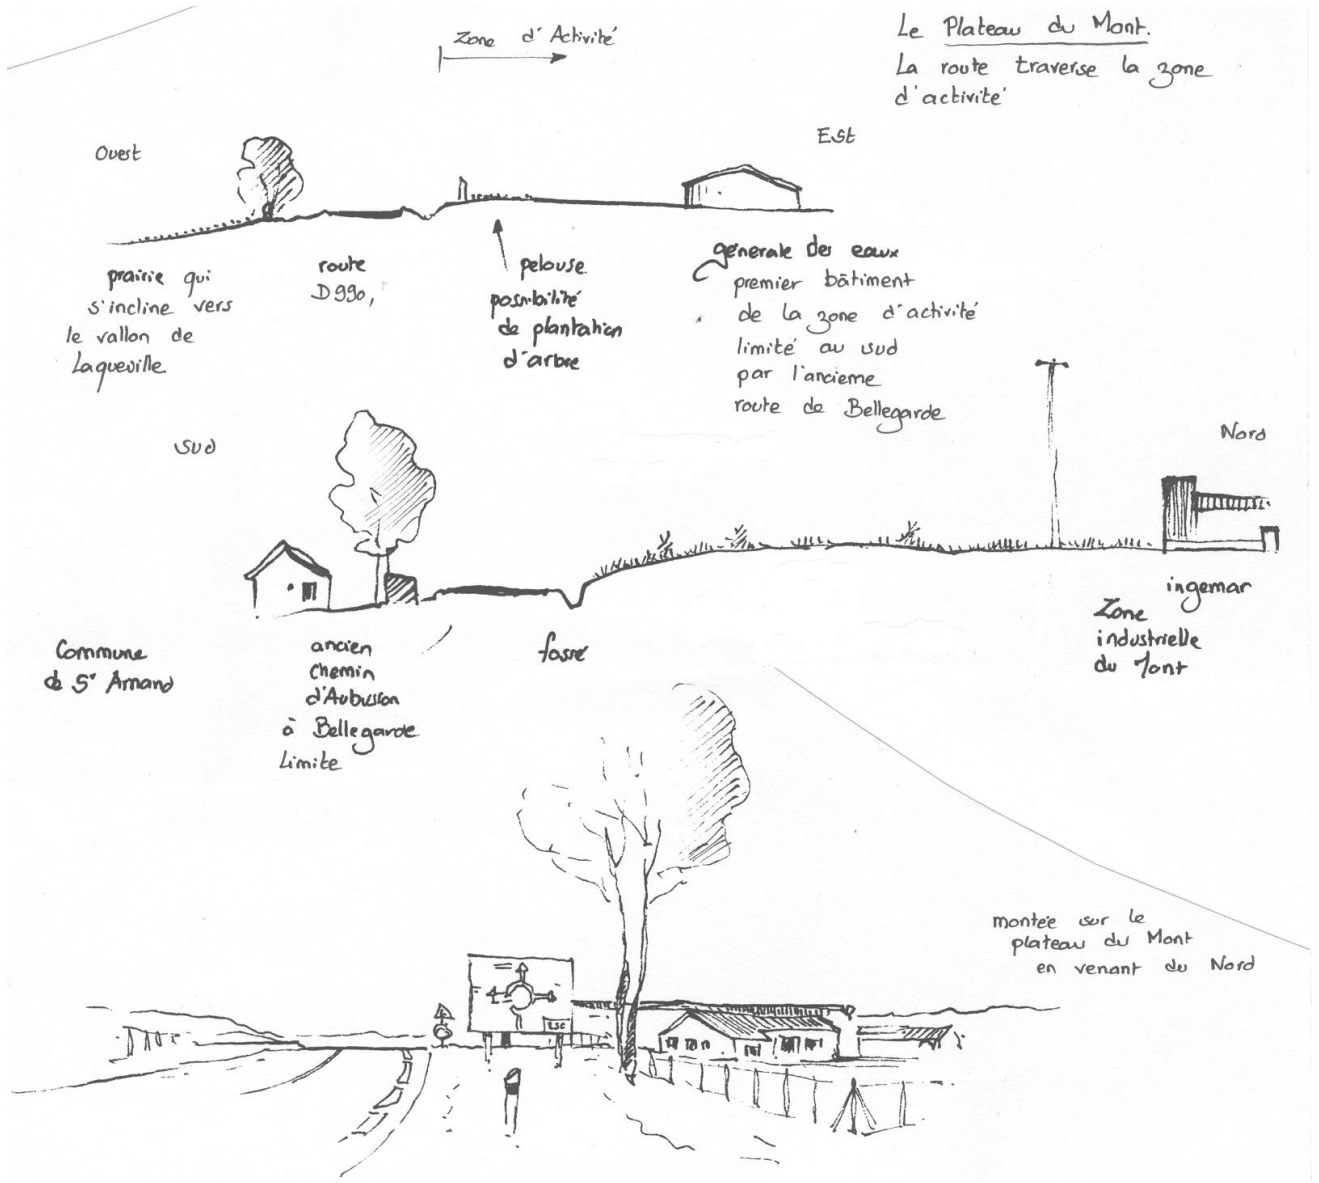 Zone d'Activité
Le Plateau du Mont.
La route traverse la zone
d'activité
Ouest
Est
prairie qui
s'incline vers
le vallon de
Laqueuille
route
D990,
pelouse
possibilité
de plantation
d'arbre
générale des eaux
premier bâtiment
de la zone d'activité
limité au sud
par l'ancienne
route de Bellegarde
Sud
Nord
Commune
de St Amand
ancien
chemin
d'Aubusson
à Bellegarde
Limite
fossé
ingemar
Zone
industrielle
du Mont
montée sur le
plateau du Mont
en venant du Nord